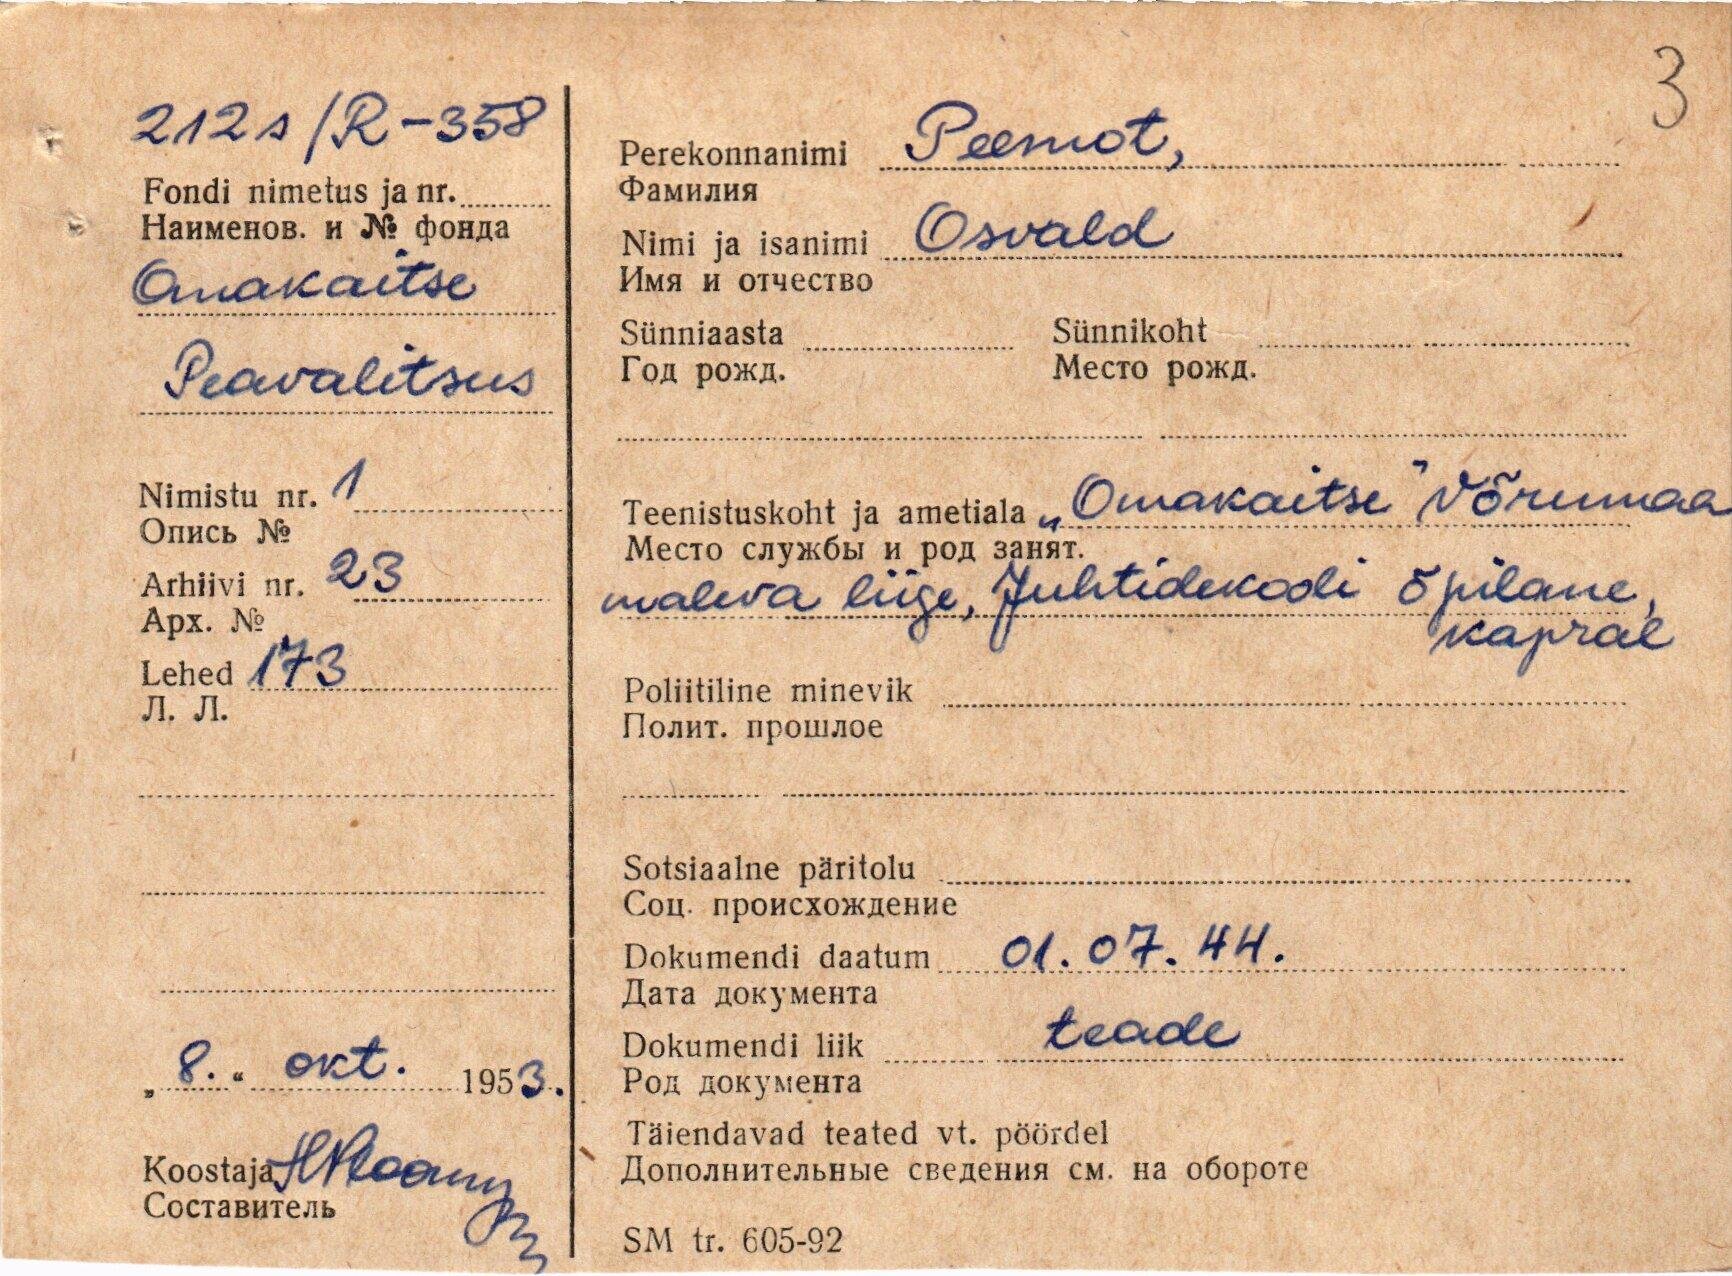 3
212s/R-358
Fondi nimetus ja nr.
Наименов. и № фонда
Omakaitse
Peavalitsus
Nimistu nr. 1
Опись №
Arhiivi nr. 23
Арх. №
Lehed 173
Л. Л.
„ 8. “ okt. 1953.
Koostaja
Составитель
Perekonnanimi Peemot,
Фамилия
Nimi ja isanimi Osvald
Имя и отчество
Sünniaasta Sünnikoht
Год рожд. Место рожд.
Teenistuskoht ja ametiala „Omakaitse" Võrumaa
Место службы и род занят.
maleva liige, Juhtidekooli õpilane,
kapral
Poliitiline minevik
Полит. прошлое
Sotsiaalne päritolu
Соц. происхождение
Dokumendi daatum 01.07.44.
Дата документа
Dokumendi liik teade
Род документа
Täiendavad teated vt. pöördel
Дополнительные сведения см. на обороте
SM tr. 605-92